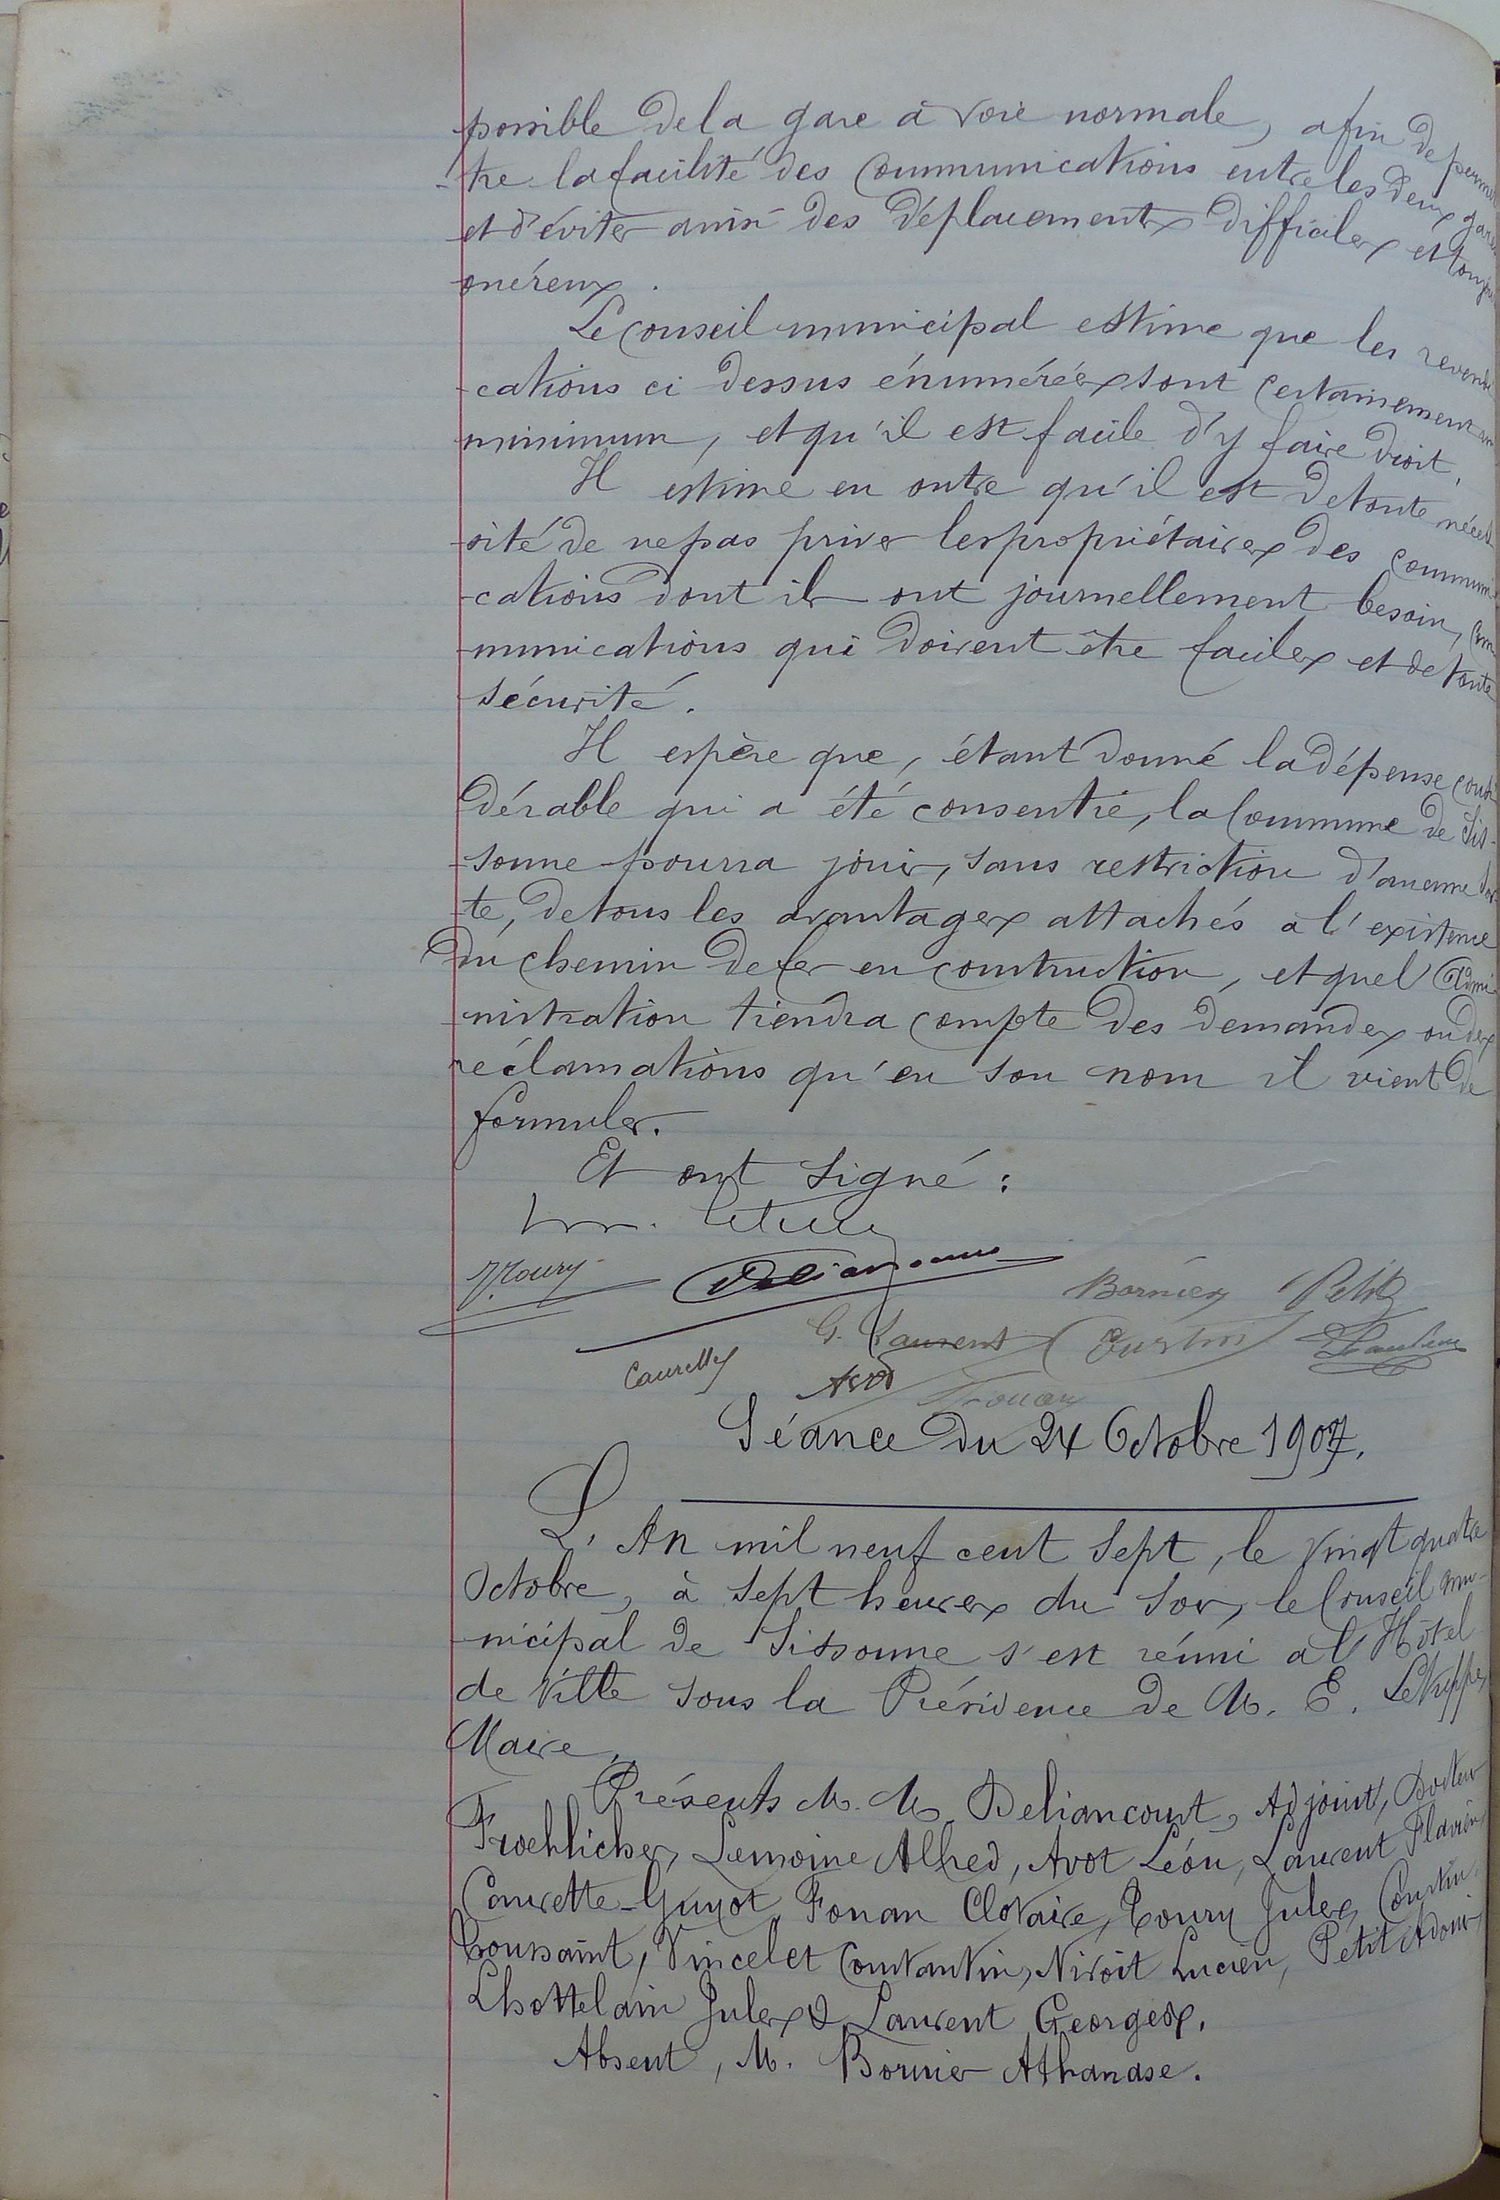 possible de la gare à voie normale, afin de permet
-tre la facilité des communications entre les deux gares
et d'éviter ainsi des déplacements difficiles et toujours
onéreux.
Le Conseil municipal estime que les revendi
-cations ci dessus énumérées sont certainement un
minimum, et qu'il est facile d'y faire droit.
Il estime en outre qu'il est de toute néces
-sité de ne pas priver les propriétaires des communi
-cations dont ils ont journellement besoin, com
-munications qui doivent être faciles et de toute
sécurité.
Il espère que, étant donné la dépense consi
dérable qui a été consentie, la Commune de Sis-
-sonne pourra jouir, sans restriction d'aucune sor
-te, de tous les avantages attachés à l'existence
du chemin de fer en construction, et que l'Admi
-nistration tiendra compte des demandes ou des
réclamations qu'en son nom il vient de
formuler.
Et ont signé :
J. Toury Deliancourt
Bornier Petit
G. Laurent Courtin
Caurette Avot
Séance du 24 Octobre 1907.
L'An mil neuf cent sept, le vingt quatre
Octobre, à sept heures du soir, le Conseil mu-
-nicipal de Sissonne s'est réuni à l'Hôtel
de Ville sous la Présidence de M. E. Letuppe,
Maire.
Présents M. M. Deliancourt, Adjoint, Docteur
Froehlicher, Lemoine Alfred, Avot Léon, Laurent Flavien,
Caurette-Guyot, Fouan Clotaire, Toury Jules, Courtin
Toussaint, Vincelet Constantin, Niroit Lucien, Petit Adonis,
Lhottelain Jules & Laurent Georges.
Absent, M. Bornier Athanase.